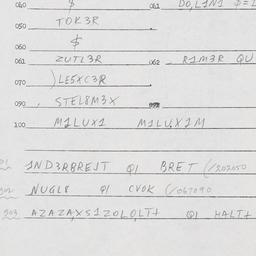 040 $ 061 DO,L1N1 $=1
050 TOK3R
060 $
061 ZUTL3R 062 R1M3R QU
070 )LE5XC3R
090 STEL8M3X
100 M1LUX1 M1LUX1M
1ND3RBRE1T Q1 BRET (/202050
NUGL8 Q1 CVOK (/067090
903 AZAZA,XS1ZOLO,LT+ Q1 HALT+